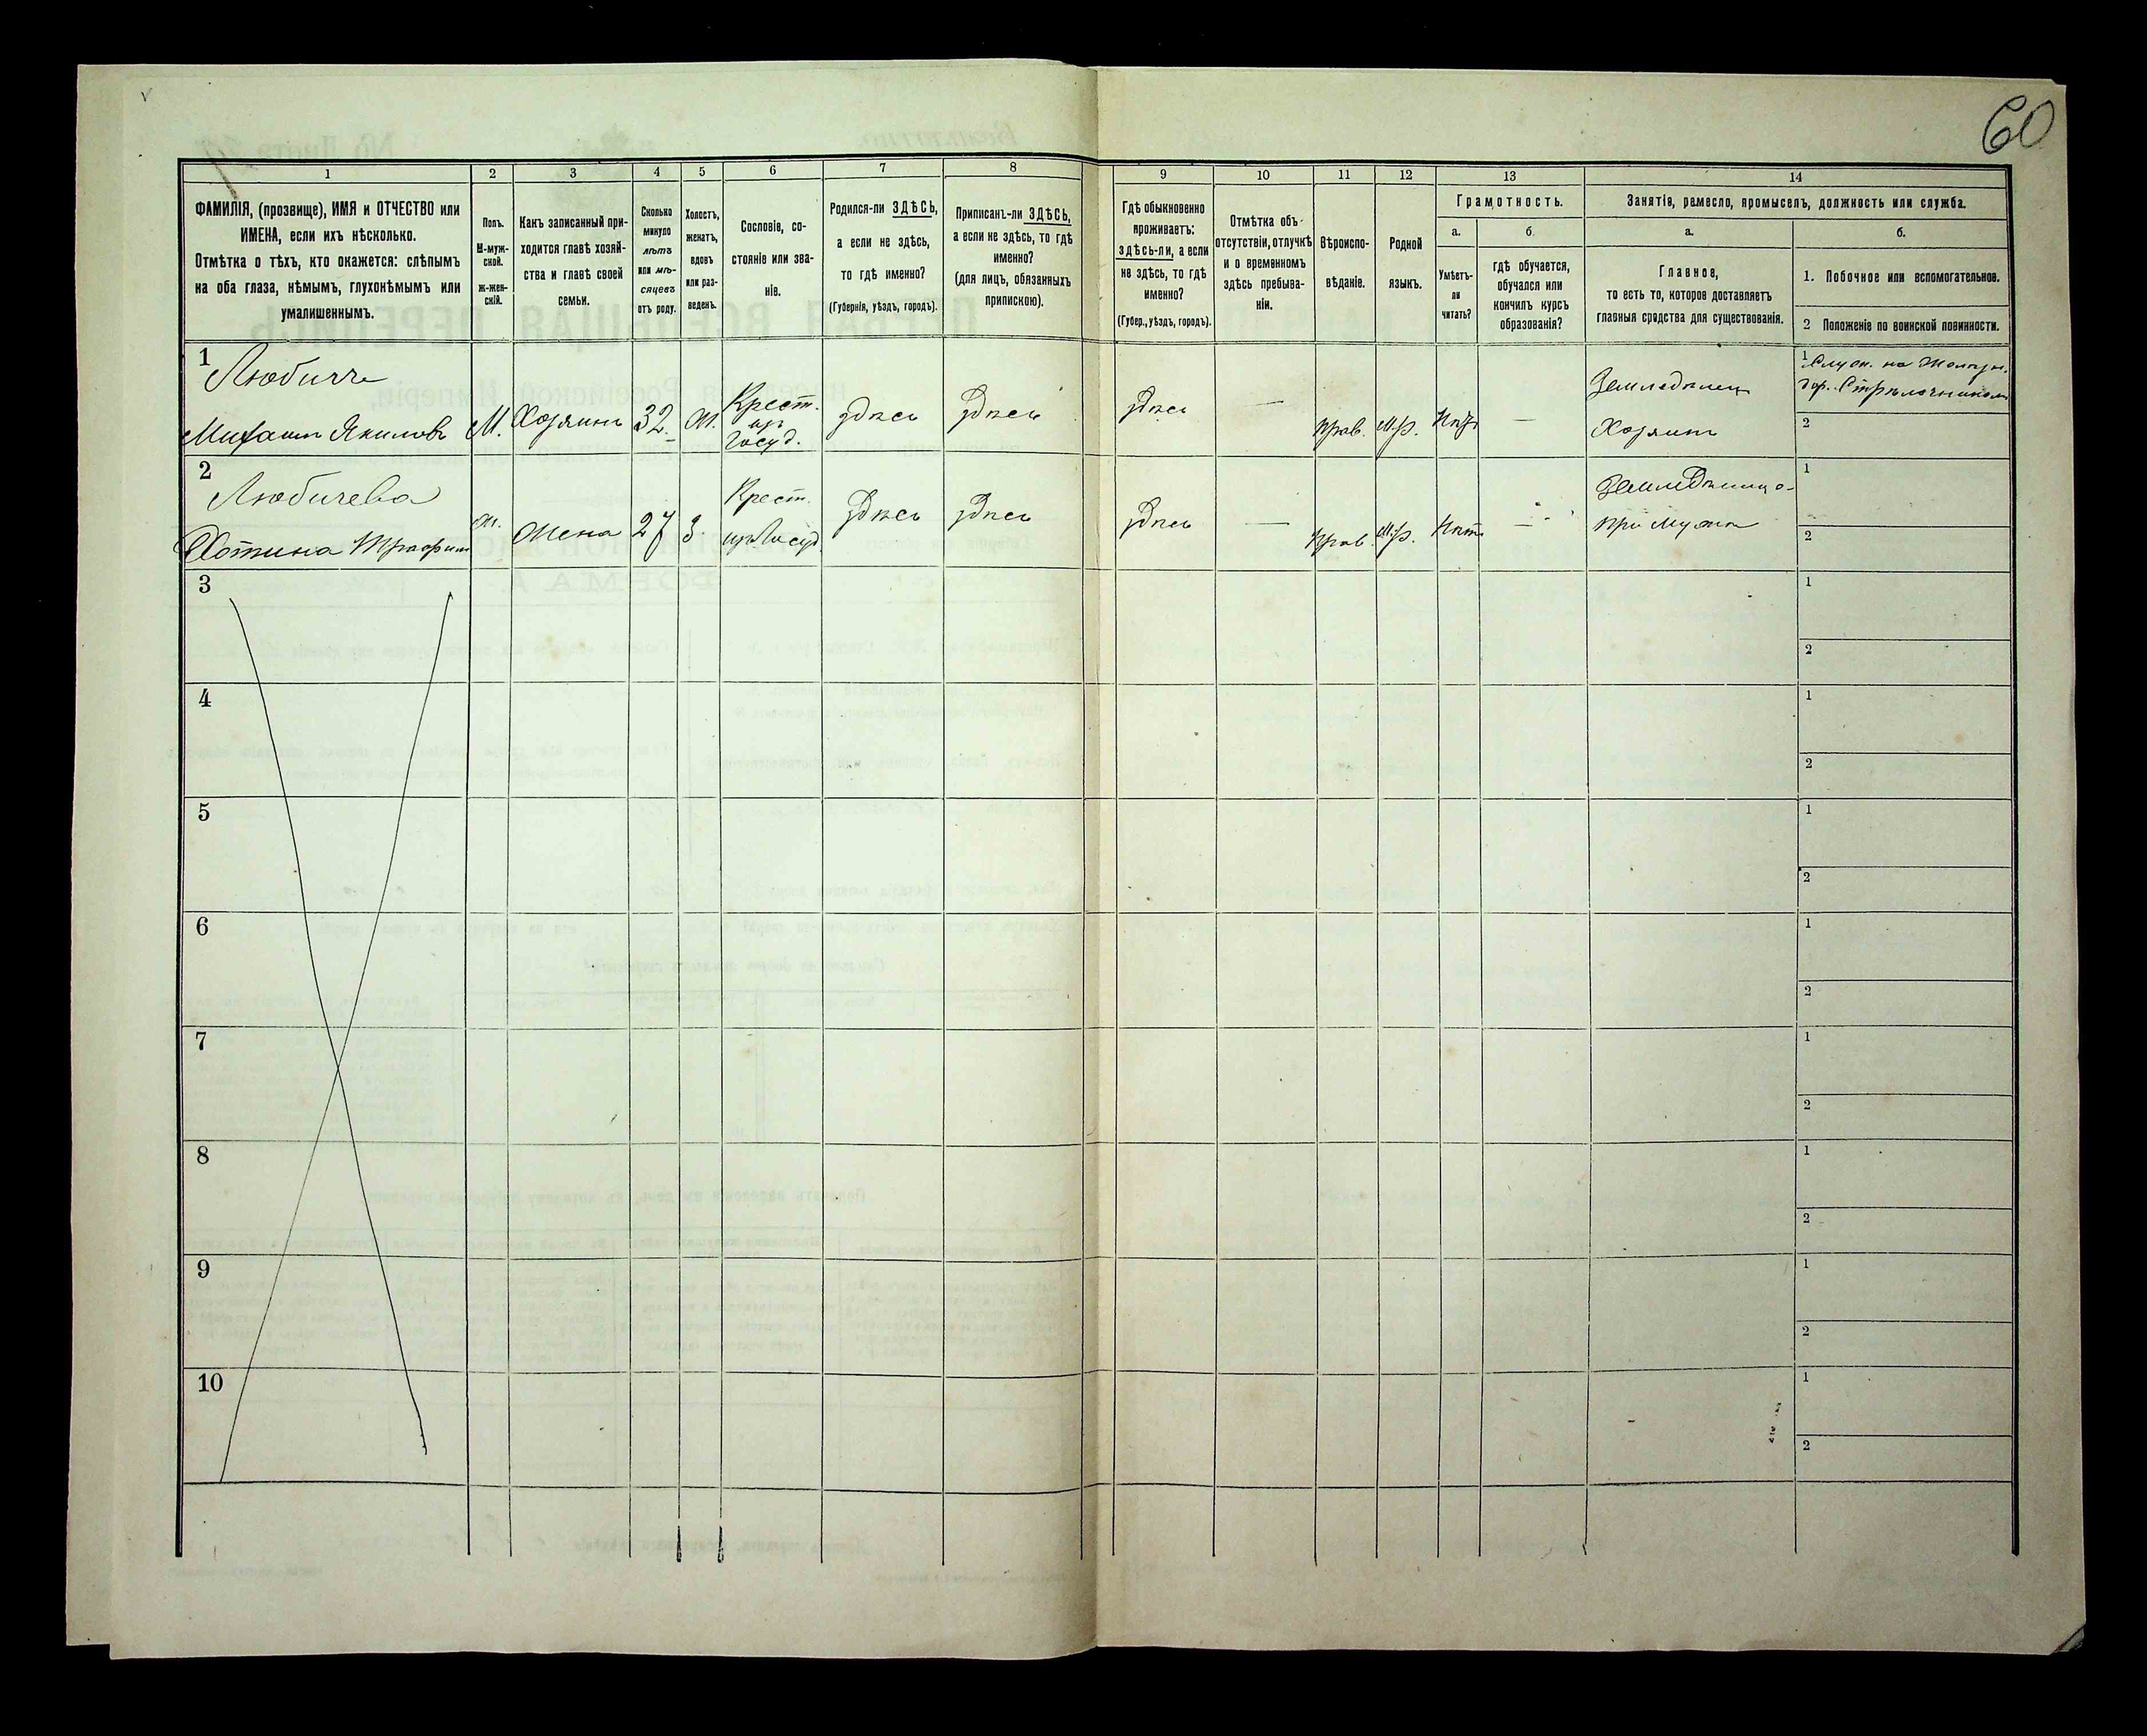 60
1
2
3
4
5
6
7
8
9
10
11
12
13
14
ФАМИЛІЯ, (прозвище), ИМЯ и ОТЧЕСТВО или
ИМЕНА, если ихъ нѣсколько.
Отмѣтка о тѣхъ, кто окажется: слѣпымъ
на оба глаза, нѣмымъ, глухонѣмымъ или
умалишеннымъ.
Полъ.
М-муж-
ской.
ж-жен-
скій.
Какъ записанный при-
ходится главѣ хозяй-
ства и главѣ своей
семьи.
Сколько
минуло
лѣтъ
или мѣ-
сяцевъ
отъ роду.
Холостъ,
женатъ,
вдовъ
или раз-
веденъ.
Сословіе, со-
стояніе или зва-
ніе.
Родился-ли ЗДѢСЬ,
а если не здѣсь,
то гдѣ именно?
(Губернія, уѣздъ, городъ).
Приписанъ-ли ЗДѢСЬ,
а если не здѣсь, то гдѣ
именно?
(для лицъ, обязанныхъ
припискою).
Гдѣ обыкновенно
проживаетъ:
здѣсь-ли, а если
не здѣсь, то гдѣ
именно?
(Губер., уѣздъ, городъ).
Отмѣтка объ
отсутствіи, отлучкѣ
и о временномъ
здѣсь пребыва-
ніи.
Вѣроиспо-
вѣданіе.
Родной
языкъ.
Грамотность.
а.
Умѣетъ-
ли
читать?
б.
гдѣ обучается,
обучался или
кончилъ курсъ
образованія?
Занятія, ремесло, промыселъ, должность или служба.
а.
Главное,
то есть то, которое доставляетъ
главныя средства для существованія.
б.
1. Побочное или вспомогательное.
2 Положеніе по воинской повинности.
1
Михаилъ Якимовъ
М.
Хозяинъ
32.
Ж.
Крест.
изъ
Госуд.
здѣсь
здѣсь
здѣсь
—
Прав.
Мр.
Нѣтъ
—
Земледѣлец
Хозяинъ
1
2
2
Любичева
Ж.
Жена
27
З.
Крест.
изъ Госуд.
здѣсь
здѣсь
здѣсь
—
Прав.
Мр.
Нѣтъ
—
при мужѣ
1
2
3
1
2
4
1
2
5
1
2
6
1
2
7
1
2
8
1
2
9
1
2
10
1
2